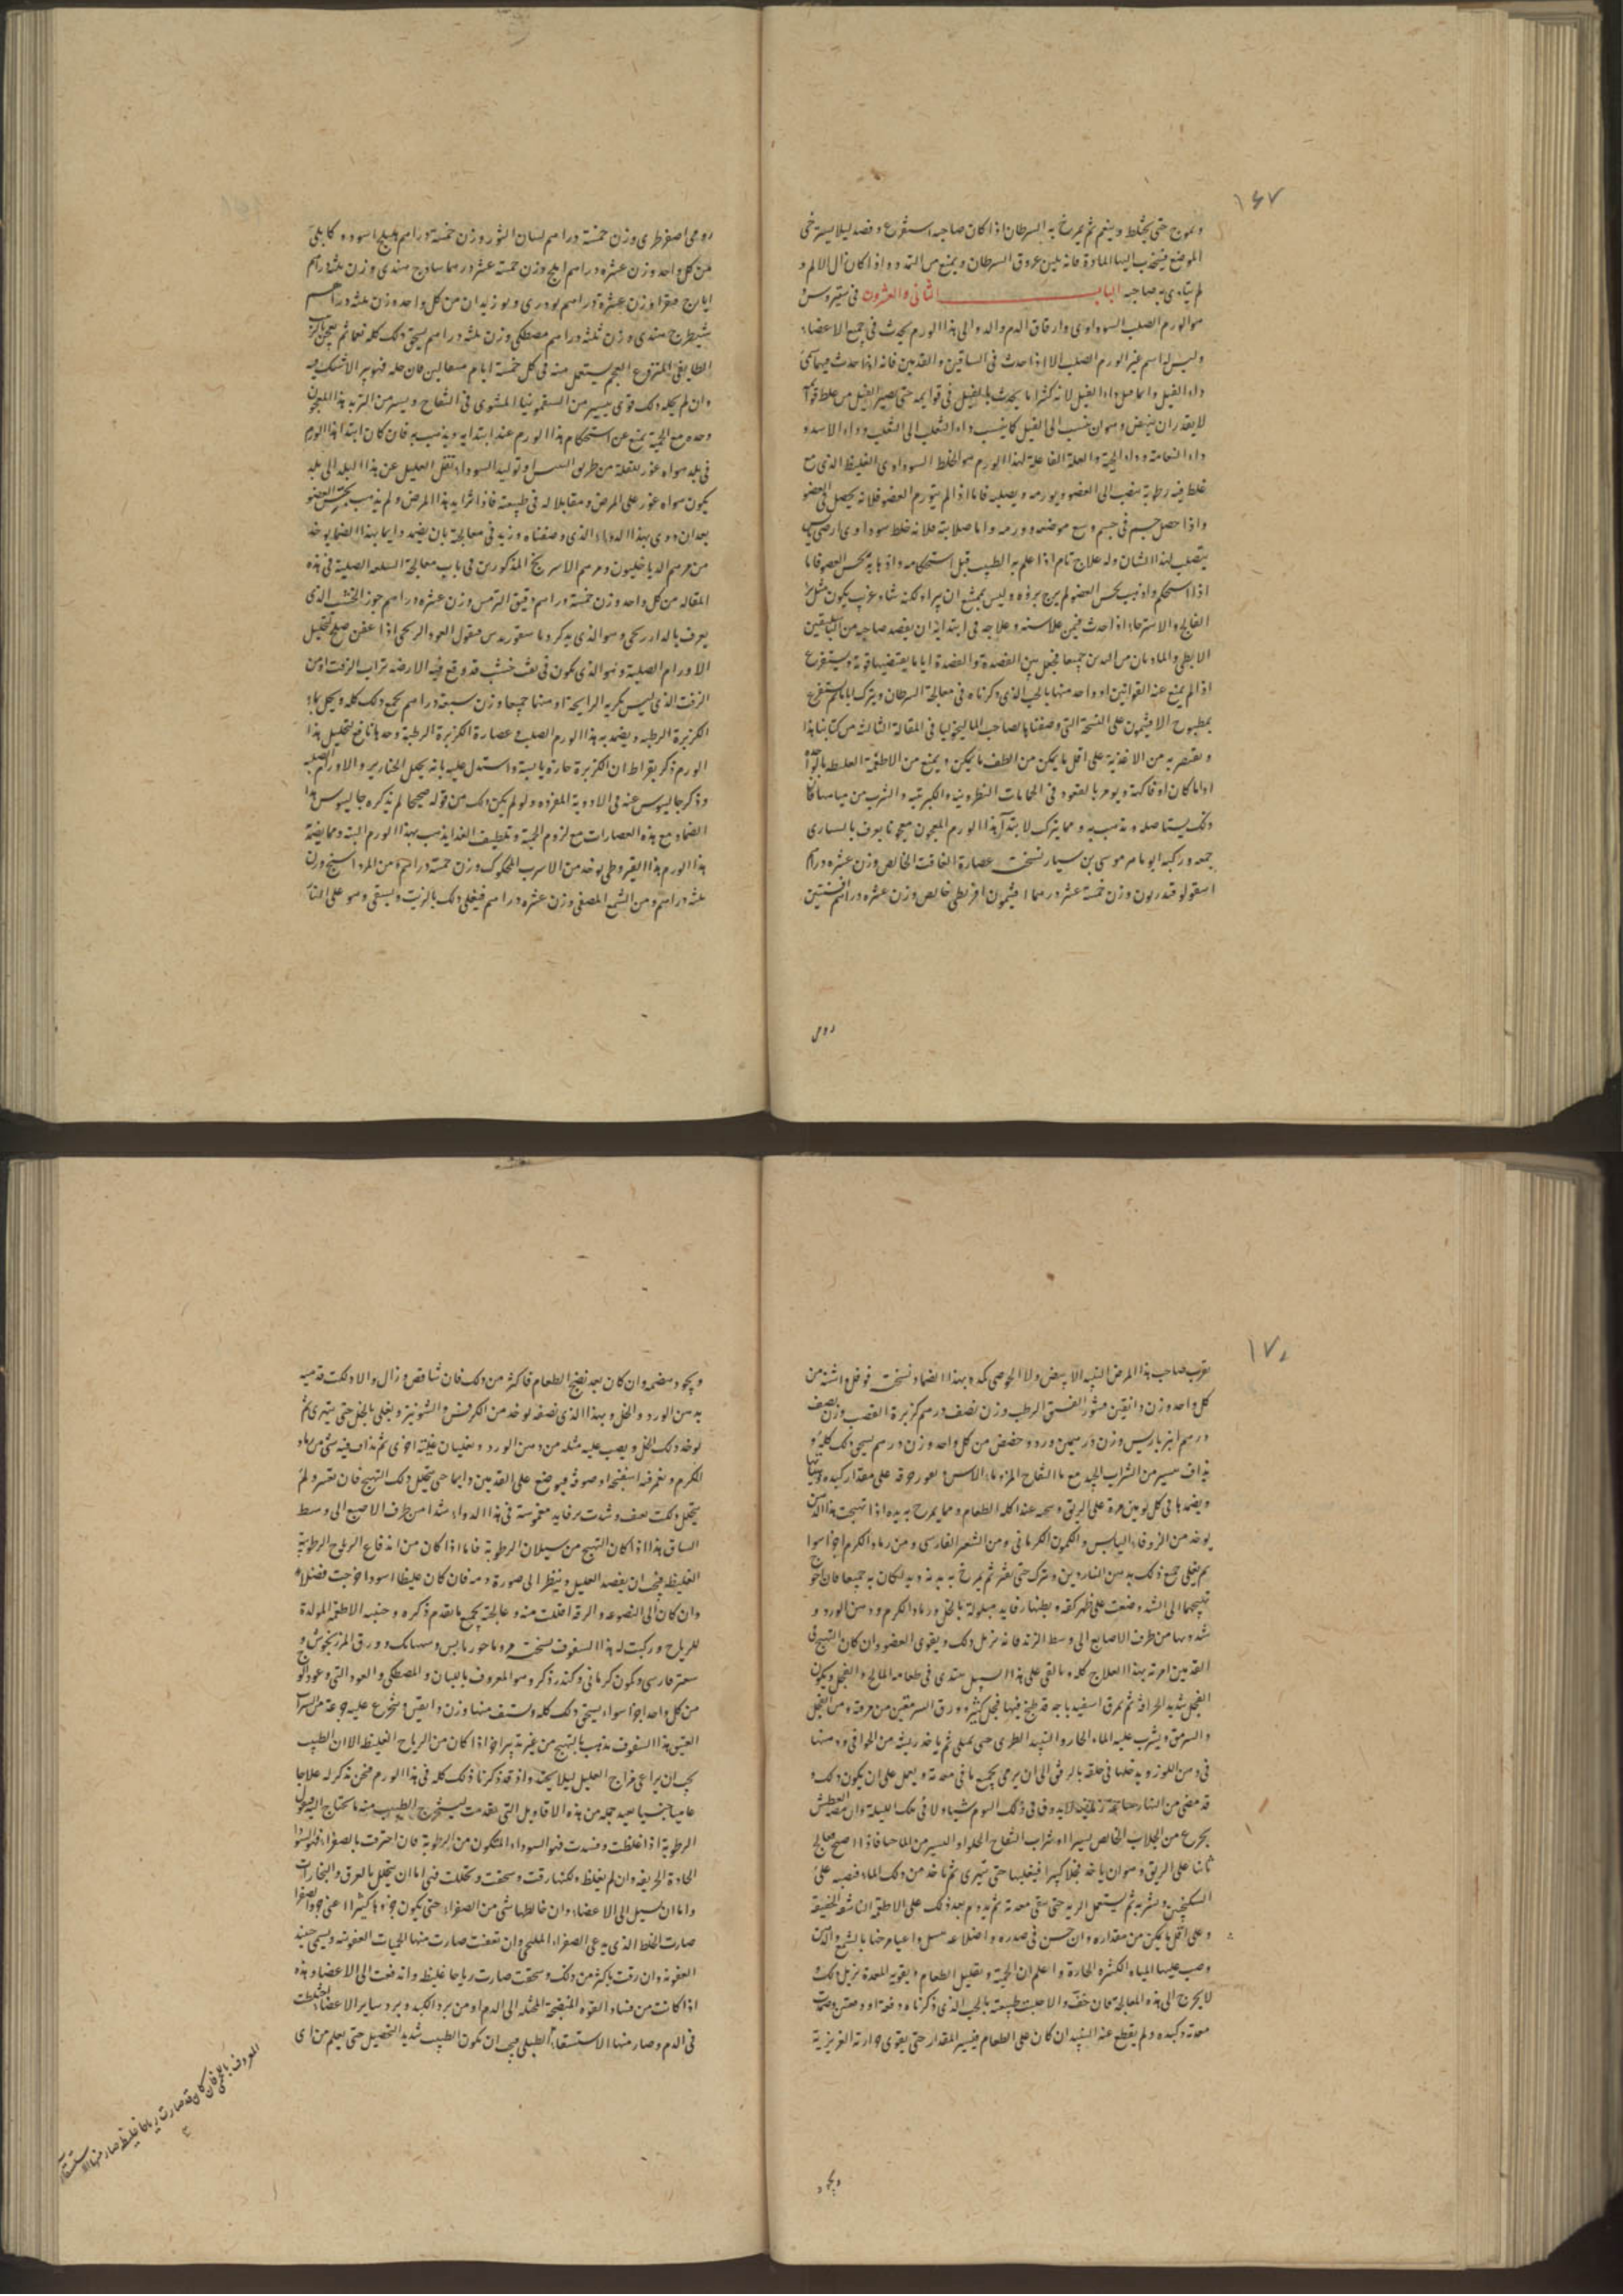 ١٦٧
و يموج حتى يختلط و ينعم ثم يمرخ به السرطان اذا كان صاحبه استفرغ و فصد ليلا يسترخى
الموضع فينجذب اليها المادة فانه يلين عروق السرطان و يمنع من التمدد و اذا كان ال الالم و
لم يتاذى به صاحبه الباب الثانى و العشرون فى سقيروس
هو الورم الصلب السوداوى و ارقاق الدم و الدوالى هذا الورم يحدث فى جميع الاعضاء
و ليس له اسم غير الورم الصلب الا اذا حدث فى الساقين و القدمين فانه اذا حدث فيهما سمى
داء الفيل و انما قيل داء الفيل لانه كثيرا ما يحدث بالفيل فى قوايمه حتى يصير الفيل من غلظ قوايمه
لا يقدر ان ينهض و هو ان ينسب الى الفيل كما ينسب داء الثعلب الى الثعلب و داء الاسد و
داء النعامة و داء الحية و العلة الفاعلية لهذا الورم هو الخلط السوداوى الغليظ الذى مع
غلظ فيه رطوبة ينصب الى العضو و يورمه و يصلبه فاما اذا لم يتورم العضو فلانه يحصل فى العضو
و اذا حصل جسم فى جسم وسع موضعه و ورمه و اما صلابته فلانه خلط سوداوى ارضى يابس
يتصلب لهذا الشان وله علاج تام اذا علم به الطبيب قبل استحكامه و اذهابه بحس العضو فاما
اذا استحكم و اذهب بحس العضو لم يرج برؤه و ليس يمتنع ان يبراء لكنه شاء غريب يكون مثل برء
الفالج و الاسترخا اذا احدث فيمن علا سنه و علاجه فى ابتدائه ان يفصد صاحبه من الباسلقين
الابطى و الماديان من اليدين جميعا فيجعل بين الفصدة و الفصدة اياما يقتضيها قوته و يستفرغ
اذا لم يمنع عنه القوانين او واحد منها بالحب الذى ذكرناه فى معالجة السرطان و يترك اياما ثم يستفرغ
بمطبوخ الافيثمون على النسخة التى وصفناها لصاحب الماليخوليا فى المقالة الثالثة من كتابنا هذا
و يقتصر به من الاغذية على اقل ما يمكن من الطف ما يمكن و يمنع من الاطعمة الغليظة بالواحدة
اداما كان او فاكهة و يومر بالقعود فى الحمامات النطرونية و الكبريتية و الشرب من مياهها فان
ذلك يستاصله و يذهب به و مما يترك لابتدا هذا الورم المعجون معجونا يعرف باليسارى
جمعه و ركبه ابو ماهر موسى بن سيار نسخته عصارة الغافت الخالص وزن عشرة دراهم
اسقولو قندريون وزن خمسة عشر درهما افيثمون اقريطى خالص وزن عشرة دراهم افسنتين
رومى
رومى اصفر طرى وزن خمسة دراهم لسان الثور وزن خمسة دراهم هليلج اسود و كابلى
من كل واحد وزن عشرة دراهم املج وزن خمسة عشر درهما ساذج هندى وزن ثلثة دراهم
ايارج فيقرا وزن عشرة دراهم بودرى و بوزيدان من كل واحد وزن ثلثة دراهم
شيطرج هندى وزن ثلثة دراهم مصطكى وزن ثلثة دراهم يسحق ذلك كله نعما ثم يعجن بماء الزبيب
الطايفى المنزوع العجم يستعمل منه فى كل خمسة ايام مثقالين فان حله فهو يبرا لا شك فيه
و ان لم يحله ذلك قوى بيسير من السقمونيا المشوى فى التفاح و يسير من التربد هذا المعجون
وحده مع الحمية يمنع عن استحكام هذا الورم عند ابتدايه و يذهب به فان كان ابتدا هذا الورم
فى بلد هواه غور ينقله من طريق اليبس او توليد السودا نقل العليل عن هذا البلد الى بلد
يكون هواه غور على المرض و مقابلا له فى طبيعته فاذا اثرا به هذا المرض و لم يذهب بحس العضو
بعد ان دوى بهذا الدواء الذى وصفناه و زيد فى معالجته بان يضمد دايما بهذا الضماد يوخذ
من مرهم الدياخليون و مرهم الاسرنج المذكورين فى باب معالجة السلعة الصلبة فى هذه
المقالة من كل واحد وزن خمسة دراهم دقيق الترمس وزن عشرة دراهم جوز الخشب الذى
يعرف بالدار ريحى و هو الذى يذكر ديا سقوريدس فيقول العود الريحى اذا عفن صلح لتحليل
الاورام الصلبة و هو الذى يكون فى نقب خشب قد وقع فيه الارضة تراب الزفت او من
الزفت الذى ليس بكريه الرايحة او منها جميعا وزن سبعة دراهم يجمع ذلك كله و يحل بماء
الكزبرة الرطبة و يضمد به هذا الورم الصلب و عصارة الكزبرة الرطبة وحدها نافع لتحليل هذا
الورم ذكر بقراط ان الكزبرة حارة يابسة و استدل عليه بانه يحلل الخنازير و الاورام الصلبة
و ذكر جالينوس عنه فى الادوية المفردة و لو لم يكن ذلك من قوله صحيحا لم يذكره جالينوس هذا
الضماد مع هذه العصارات مع لزوم الحمية و تلطيف الغذا يذهب بهذا الورم البتة و مما يضمد به
هذا الورم هذا القيروطى يوخذ من الاسرب المحكوك وزن خمسة دراهم من المرداسنج وزن
ثلثة دراهم و من الشمع المصفى وزن عشرة دراهم فيغلى ذلك بالزيت و يسقى و هو على النار
١٧٠
يقرب صاحب هذا المرض النبيذ الابيض ولا الحوصى كبده بهذا الضماد نسخته فوفل اشنة من
كل واحد وزن دانقين قشور الفستق الرطب وزن نصف درهم كزبرة القصب وزن نصف
درهم انبرباريس وزن درهمين ورد و حضض من كل واحد وزن درهم يسحق ذلك كله و
يذاف بيسير من الشراب الجيد مع ماء التفاح المز و ماء الاس و يغور خرقة على مقدار كبده
و يضمدها فى كل يومين مرة على الريق و ينحيه عند اكله الطعام و مما يمرخ به يديه اذا تهيجت هذا الدهن
يوخذ من الزوفا اليابس و الكمون الكرمانى و من الشعر الفارسى و من رماد الكرم اجزا سوا
ثم يغلى جميع ذلك بدهن الناردين و يترك حتى يفتر ثم يمرخ به يديه ان كان به جميعا فان احوج
تهيجهما الى الشد وضعت على ظهر كفه و بطنها رفايد مبلولة بالخل و رماد الكرم و دهن الورد و
شدوها من طرف الاصابع الى وسط الزند فانه يزيل ذلك و يقوى العضو و ان كان التهيج فى
القدمين امرته بهذا العلاج كله و بالقى على هذا السبيل يبتدى فى طعامه المالح و الفجل و يكون
الفجل شديد الحرافة ثم بمرق اسفيدباجة قد طبخ فيها فجل كثير و ورق السرمق من مرقه و من الفجل
و السرمق و يشرب عليه الماء الحار و النبيذ الطرى حتى يمتلى ثم ياخذ ريشة من الخوافى و يدهنها
فى دهن اللوز و يدخلها فى حلقه بالرفق الى ان يرمى بجميع ما فى معدته و يعمل على ان يكون ذلك و
قد مضى من النهار ساعة لا يذوق فى ذلك اليوم شيا و لا فى تلك الليلة و ان مضه العطش
يجرع من الجلاب الخالص يسيرا او شراب التفاح الحلو او اليسير من الما حافا فاذا اصبح معالج
ثانيا على الريق و هو ان ياخذ فجلا كبيرا فيغليها حتى يتهرى ثم ناخذ من ذلك الماء فصبه على
السكنجبين و يشربه ثم يستعمل الريشة حتى ينقى معدته ثم يدوم بعد ذلك على الاطعمة الناشفة الخفيفة
و على اقل ما يمكن من مقداره و ان حسن فى صدره و اضلاعه بسل و اعيا مرخنا بالشمع و الدهن
و صب عليها المياه الكثيرة الحارة و اعلم ان الحمية و تقليل الطعام و تقوية المعدة يزيل ذلك و
لا يحوج الى هذه المعالجة فان خف و الا حللت طبيعته بالحب الذى ذكرناه دفعة او دفعتين و ضمدت
معدته و كبده و لم يقطع عنه النبيذ ان كان على الطعام فيسير المقدار حتى يقوى حرارته الغريزية
و يجود
و يجود هضمه و ان كان بعد نضج الطعام فاكثر من ذلك فان تناقص و زال و الا دلكت قدميه
بدهن الورد و الخل و بهذا الذى نصفه يوخذ من الكرفس و الشونيز و يغلى بالخل حتى يتهرى ثم
يوخذ ذلك الخل و يصب عليه مثله من دهن الورد و يغليان غلية اخرى ثم يذاف فيه شى من رماد
الكرم و يغمر فيه اسفنجة او صوفة فيوضع على القدمين دايما حتى يتحلل ذلك التهيج فان تعسر و لم
يتحلل دلكت بعنف و شدت برفايد مغموسة فى هذا الدواء شدا من طرف الاصبع الى وسط
الساق هذا اذا كان التهيج من سيلان الرطوبة فاما اذا كان من اندفاع الرياح الرطوبية
الغليظة فيجب ان يفصد العليل و ينظر الى صورة دمه فان كان غليظا اسود اخرجت فضلا
و ان كان الى النصوعه و الرقة اقلت منه و عالجته بجميع ما تقدم ذكره و جنبه الاطعمة المولدة
للرياح و ركبت له هذا السفوف نسخته مرو ماحور بابس و سهمانك و ورق المرزنجوش و
سعتر فارسى و كمون كرمانى و كندر ذكر و هو المعروف بالبان و المصطكى و العود النى و عود الوج
من كل واحد اجزا سواء يسحق ذلك كله و يستف منها وزن دانقين و يتجرع عليه جرعة من الشراب
العتيق هذا السفوف يذهب بالتهيج من غير تدبير اخر اذا كان من الرياح الغليظة الا ان الطبيب
يجب ان يراعى مزاج العليل ليلا يحتد و اذ قد ذكرنا ذلك كله فى هذا الورم فنحن نذكر له علاجا
عاميا جنسيا بعيد جملة من هذه الاقاويل التى تقدمت ليستخرج الطبيب منه ما يحتاج اليه فنقول
الرطوبة اذا غلظت و فسدت فهو السوداء المتكون من الرطوبة فان احترقت بالصفرا فهو السودا
الحادة الحريفة و ان لم يغلظ و لكنها رقت و سخفت و تحللت فهى اما ان يتحلل بالعرق و البخارات
و اما ان يسيل الى الاعضا و ان خالطها شى من الصفرا حتى يكون جزءها كثيرا اعنى جزو الصفرا
صارت الخلط الذى يدعى الصفراء المليحى و ان تعفنت صارت منها الحميات العفونية و يسمى حينيذ
العفونة و ان رقت باكثر من ذلك و سخفت صارت رياحا غليظة و اندفعت الى الاعضاء و هذه
اذا كانت من فساد القوه المنضجة المحيلة الى الدم او من برد الكبد و برد ساير الاعضا و اختلطت
فى الدم و صار منها الاستسقاء الطبلى فيجب ان يكون الطبيب شديد التحصيل حتى يعلم من اى
المعروف باللحمى فان كان قد صارت رياحا غليظة صار منها الاستسقاء